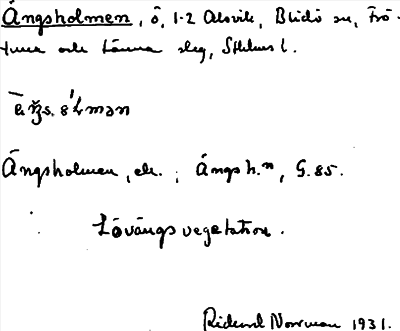 Ängsholmen, ö, 1-2 Alsvik, Blidö sn, Frö-
tuna och Länna slg, Sthlms l.
Ängsholmen, ek.; Ängsh.n, G. 85.
Lövängsvegetation.
Rickard Norrman 1931.